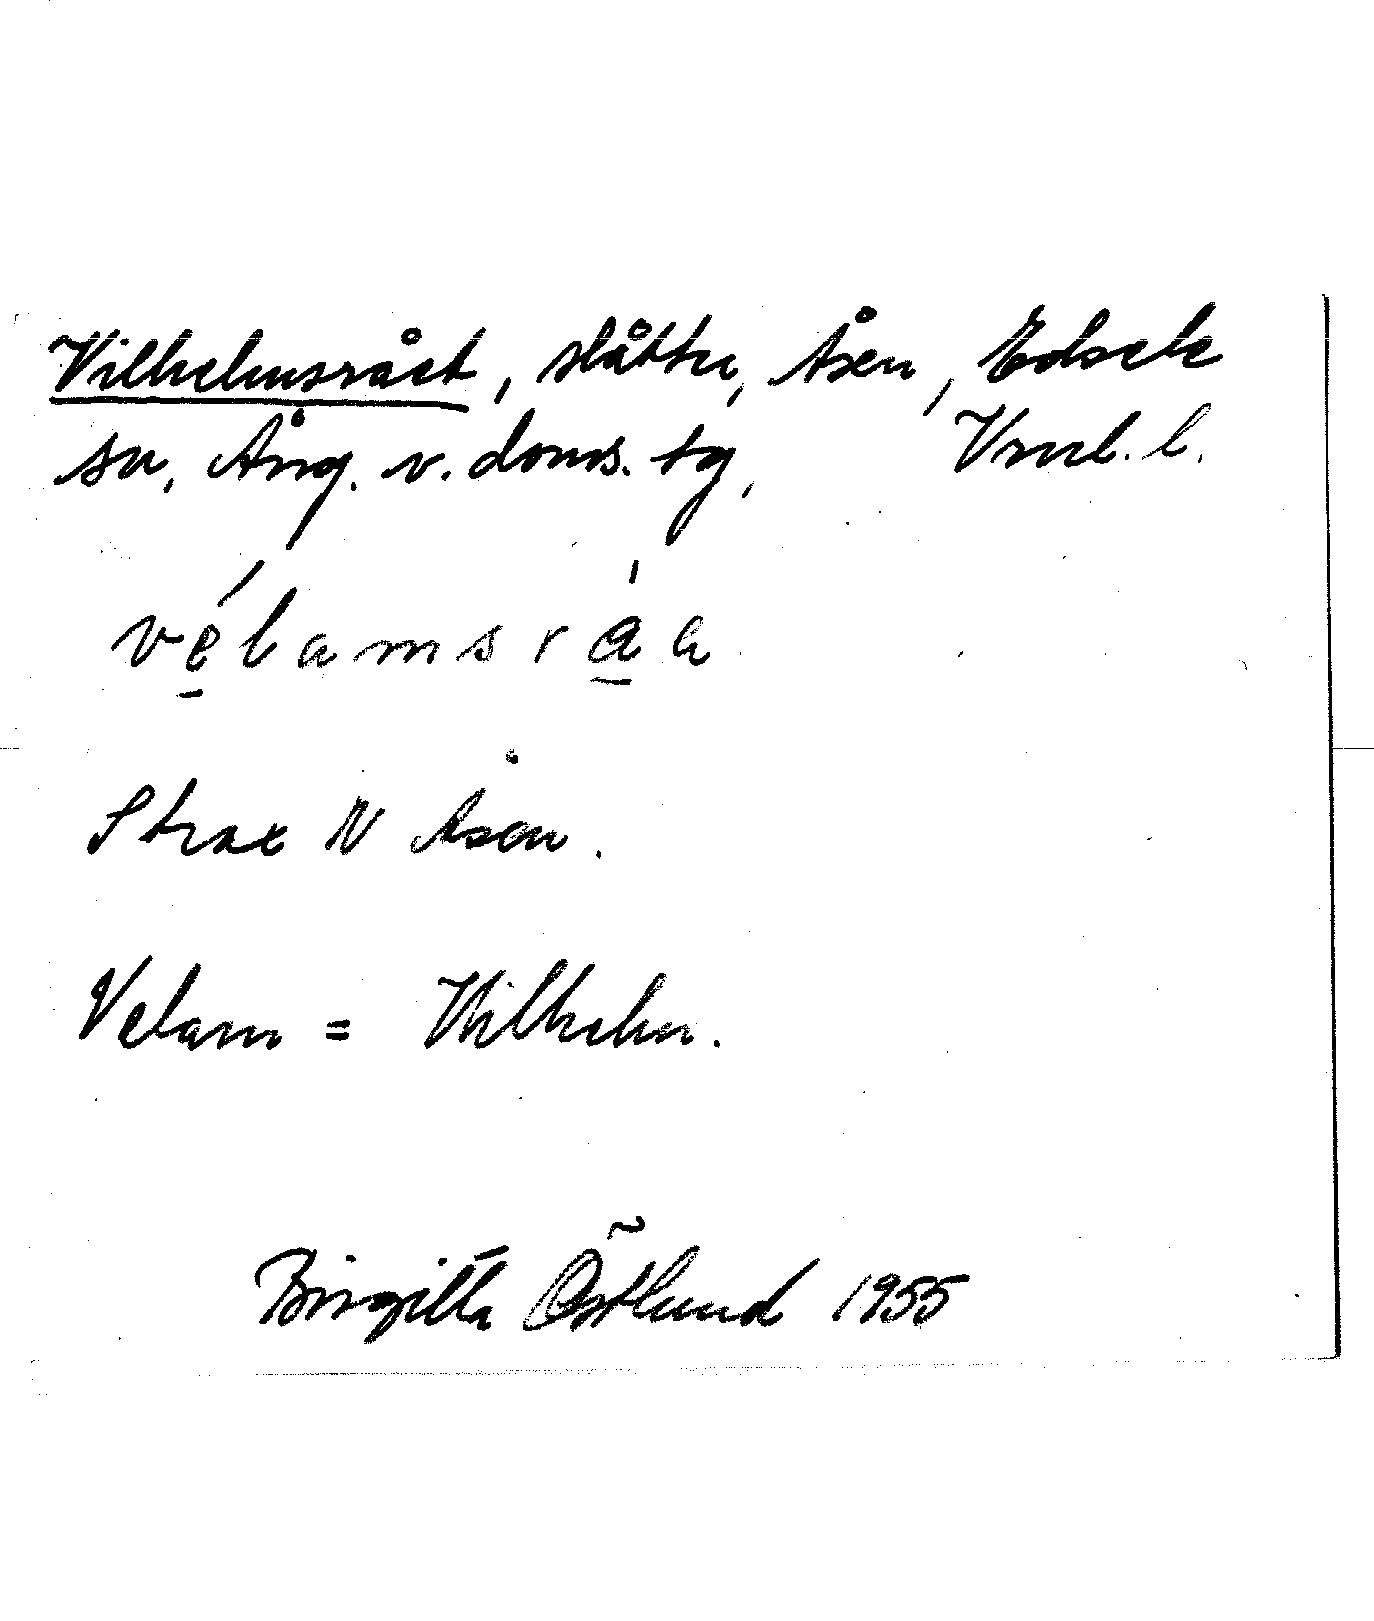 Vilhelmsrået, slåtter, Åsen, Edsele
sn, Ång. v. doms. tg, Vrnl. l.
vélamsráa
Strax N Åsen.
Velam = Vilhelm.
Birgitta Östlund 1955